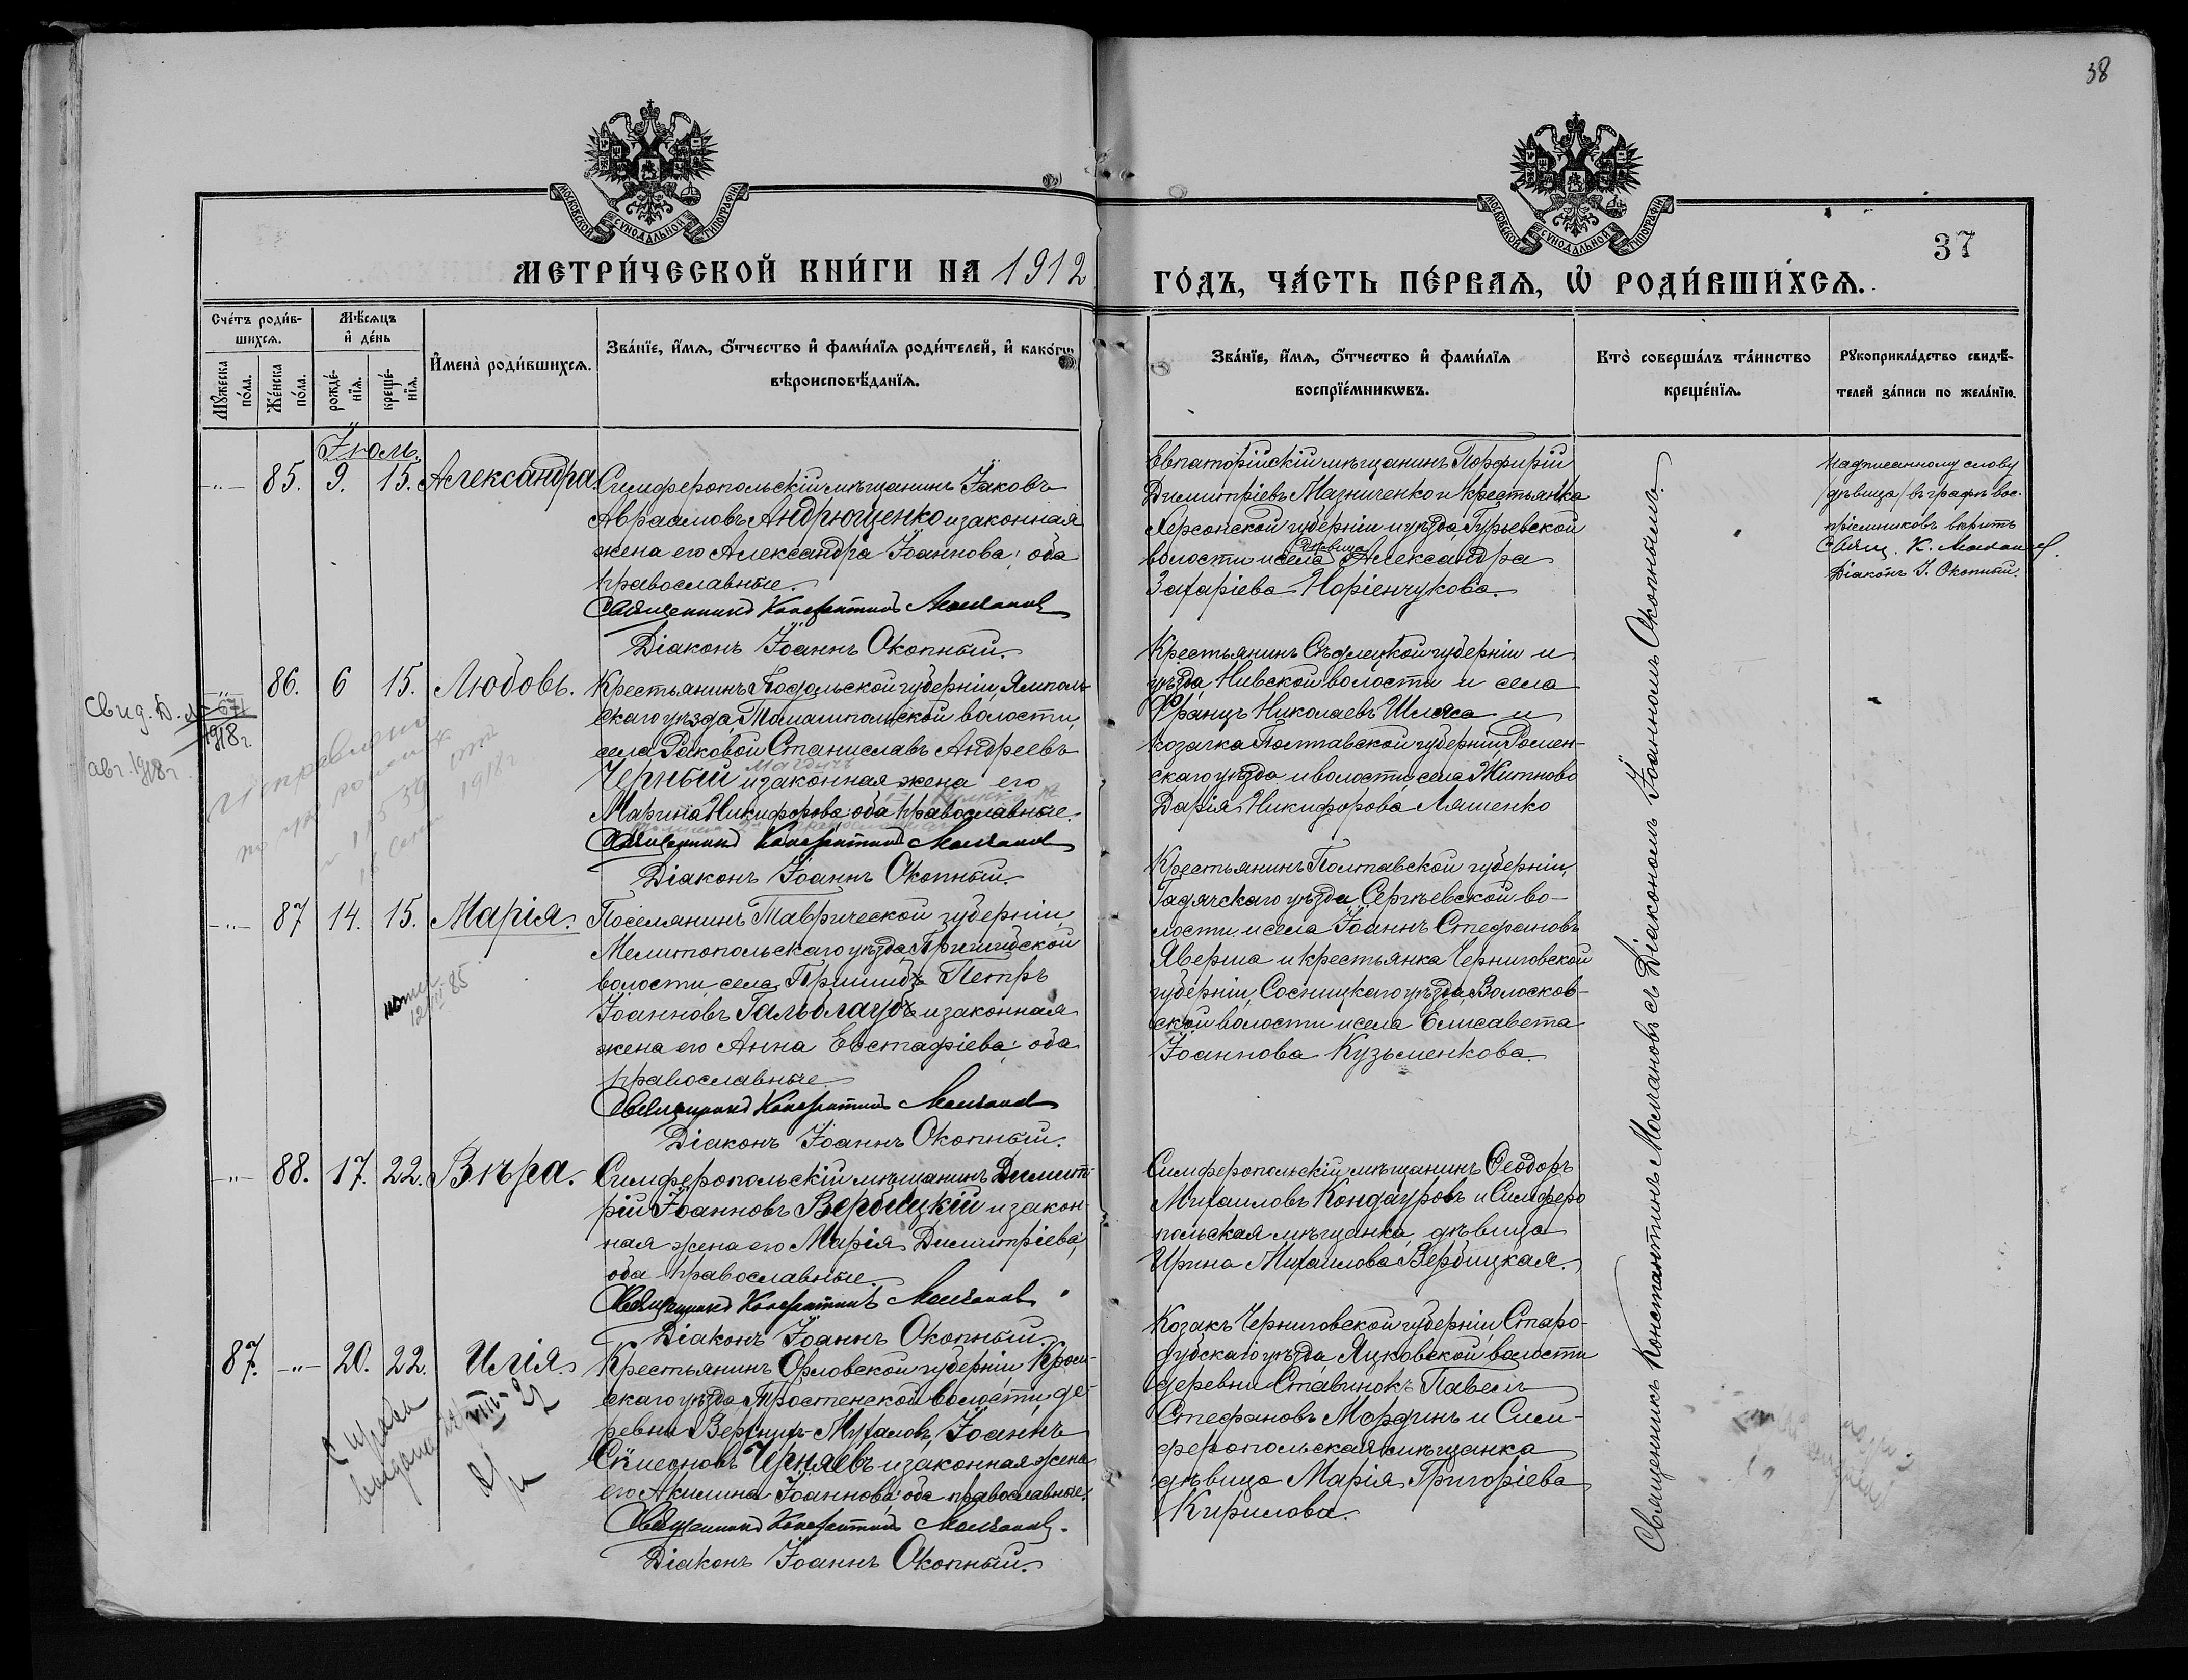 38
МОСКОВСКОЙ СУНОДАЛЬНОЙ ТИПОГРАФИИ
МОСКОВСКОЙ СУНОДАЛЬНОЙ ТИПОГРАФИИ
37
МЕТРИ́ЧЕСКОЙ КНИ́ГИ НА 1912
ГО́ДЪ, ЧА́СТЬ ПЕ́РВАѦ, Ѡ҆ РОДИ́ВШИХСѦ.
Сче́тъ роди́в-
шихсѧ.
Мꙋжеска по́ла.
Же́нска по́ла.
Мѣ́сѧцъ
и҆ де́нь
рожде́-
нїѧ.
креще́-
нїѧ.
И҆мена̀ роди́вшихсѧ.
Зва́нїе, и҆́мѧ, ѻ҆́тчество и҆ фами́лїѧ роди́телей, и҆ како́гѡ
вѣроисповѣ́данїѧ.
Зва́нїе, и҆́мѧ, ѻ҆́тчество и҆ фами́лїѧ
воспрїе́мникѡвъ.
Кто̀ соверша́лъ та́инство
креще́нїѧ.
Рꙋкоприкла́дство свидѣ́-
телей за́писи по жела́нїю.
Іюль.
-"- 85. 9. 15. Александра
Симферопольскій мѣщанинъ Іаковъ
Авраамовъ Андрющенко и законная
жена его Александра Іоаннова; оба
православные.
Священникъ Константинъ Молчановъ
Діаконъ Іоаннъ Окопный.
Евпаторійскій мѣщанинъ Порфирій
Димитріевъ Мазниченко и крестьянка
Херсонской губерніи и уѣзда, Гурьевской
волости и села дѣвица Александра
Захаріева Норіенчукова.
Надписанному слову
/дѣвица/ въ графѣ вос-
пріемниковъ вѣрить
Свящ. К. Молчановъ.
Діаконъ І. Окопный.
-"- 86. 6 15. Любовь.
Крестьянинъ Подольской губерніи, Ямполь-
скаго уѣзда, Томашпольской волости,
села Раковой Станиславъ Андреевъ
Черный и законная жена его
Марина Никифорова; оба православные.
Священникъ Константинъ Молчановъ
Діаконъ Іоаннъ Окопный.
Крестьянинъ Сѣдлецкой губерніи и
уѣзда, Нивской волости и села
Францъ Николаевъ Шляса и
козачка Полтавской губерніи, Ромен-
скаго уѣзда и волости, села Житново
Дарія Никифорова Ляшенко
Свид. Д. № 671
1918 г.
авг. 1918 г.
исправлено
1918 г.
-"- 87 14. 15. Марія.
Поселянинъ Таврической губерніи,
Мелитопольскаго уѣзда, Пришибской
волости, села Пришибъ Петръ
Іоанновъ Гальблаубъ и законная
жена его Анна Евстафіева; оба
православные.
Священникъ Константинъ Молчановъ
Діаконъ Іоаннъ Окопный.
Крестьянинъ Полтавской губерніи,
Гадячскаго уѣзда, Сергѣевской во-
лости и села Іоаннъ Стефановъ
Яверша и крестьянка Черниговской
губерніи, Сосницкаго уѣзда, Волосков-
ской волости и села Елисавета
Іоаннова Кузьменкова.
-"- 88. 17. 22. Вѣра.
Симферопольскій мѣщанинъ Димит-
рій Іоанновъ Вербицкій и закон-
ная жена его Марія Димитріева;
оба православные.
Священникъ Константинъ Молчановъ
Діаконъ Іоаннъ Окопный.
Симферопольскій мѣщанинъ Ѳеодоръ
Михаиловъ Кондауровъ и Симферо
польская мѣщанка, дѣвица
Ирина Михаилова Вербицкая.
87. -"- 20. 22. Илія.
Крестьянинъ Орловской губерніи, Кром-
скаго уѣзда, Тростенской волости, де-
ревни Іоаннъ
Сѵмеоновъ Черняевъ и законная жена
его Акилина Іоаннова; оба православные.
Священникъ Константинъ Молчановъ.
Діаконъ Іоаннъ Окопный.
Козакъ Черниговской губерніи, Старо-
дубскаго уѣзда, Яцковской волости
деревни Ставинокъ Павелъ
Стефановъ Мординъ и Сим-
феропольская мѣщанка
дѣвица Марія Григоріева
Кирилова.
Священникъ Константинъ Молчановъ съ Діакономъ Іоанномъ Окопнымъ.